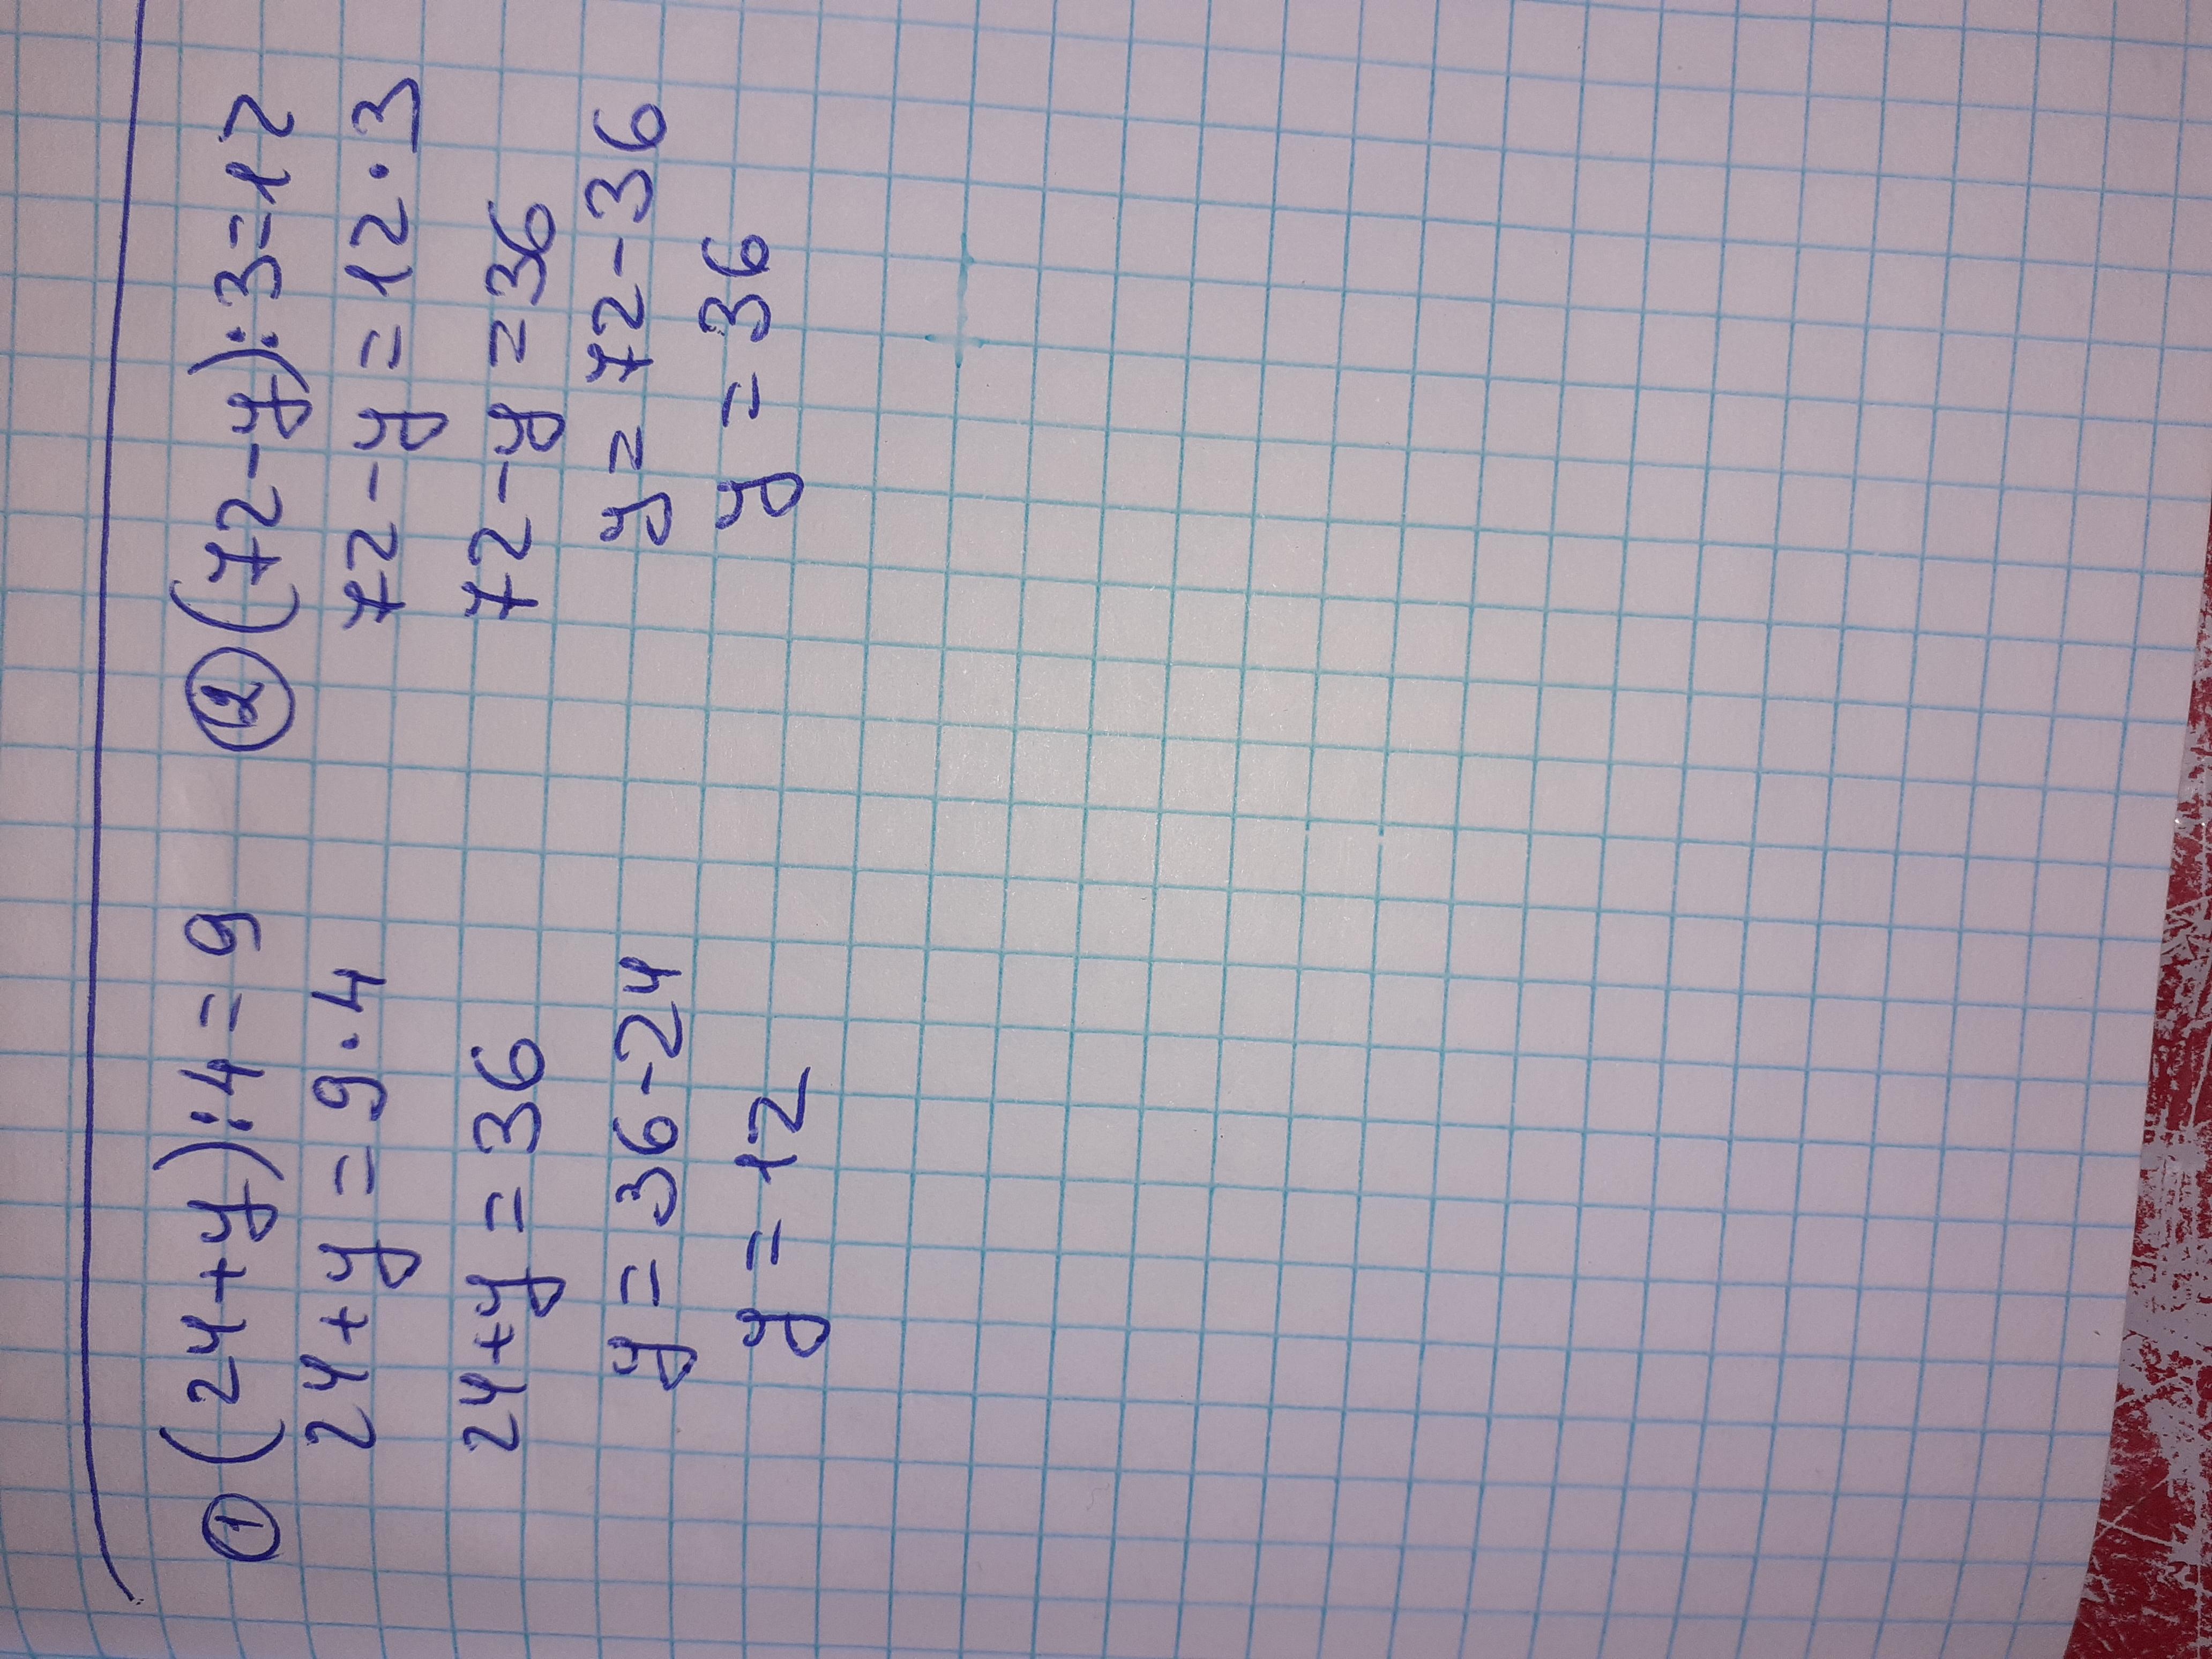 ① (24+y):4=9
24+y=9·4
24+y=36
y=36-24
y=12
② (72-y):3=12
72-y=12·3
72-y=36
y=72-36
y=36